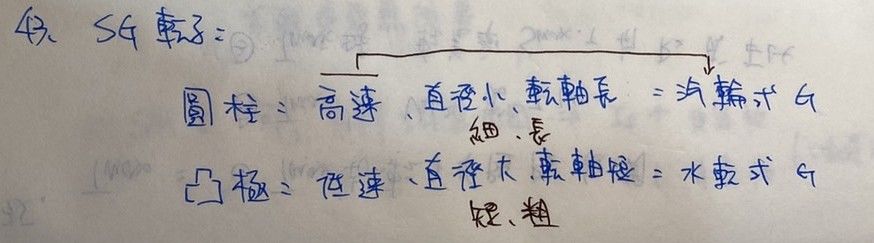 43、SG 転子:
圓柱:高速、直徑小、転軸長 = 汽輪式 G
細、長
凸極:低速、直徑大、転軸短 = 水転式 G
短、粗